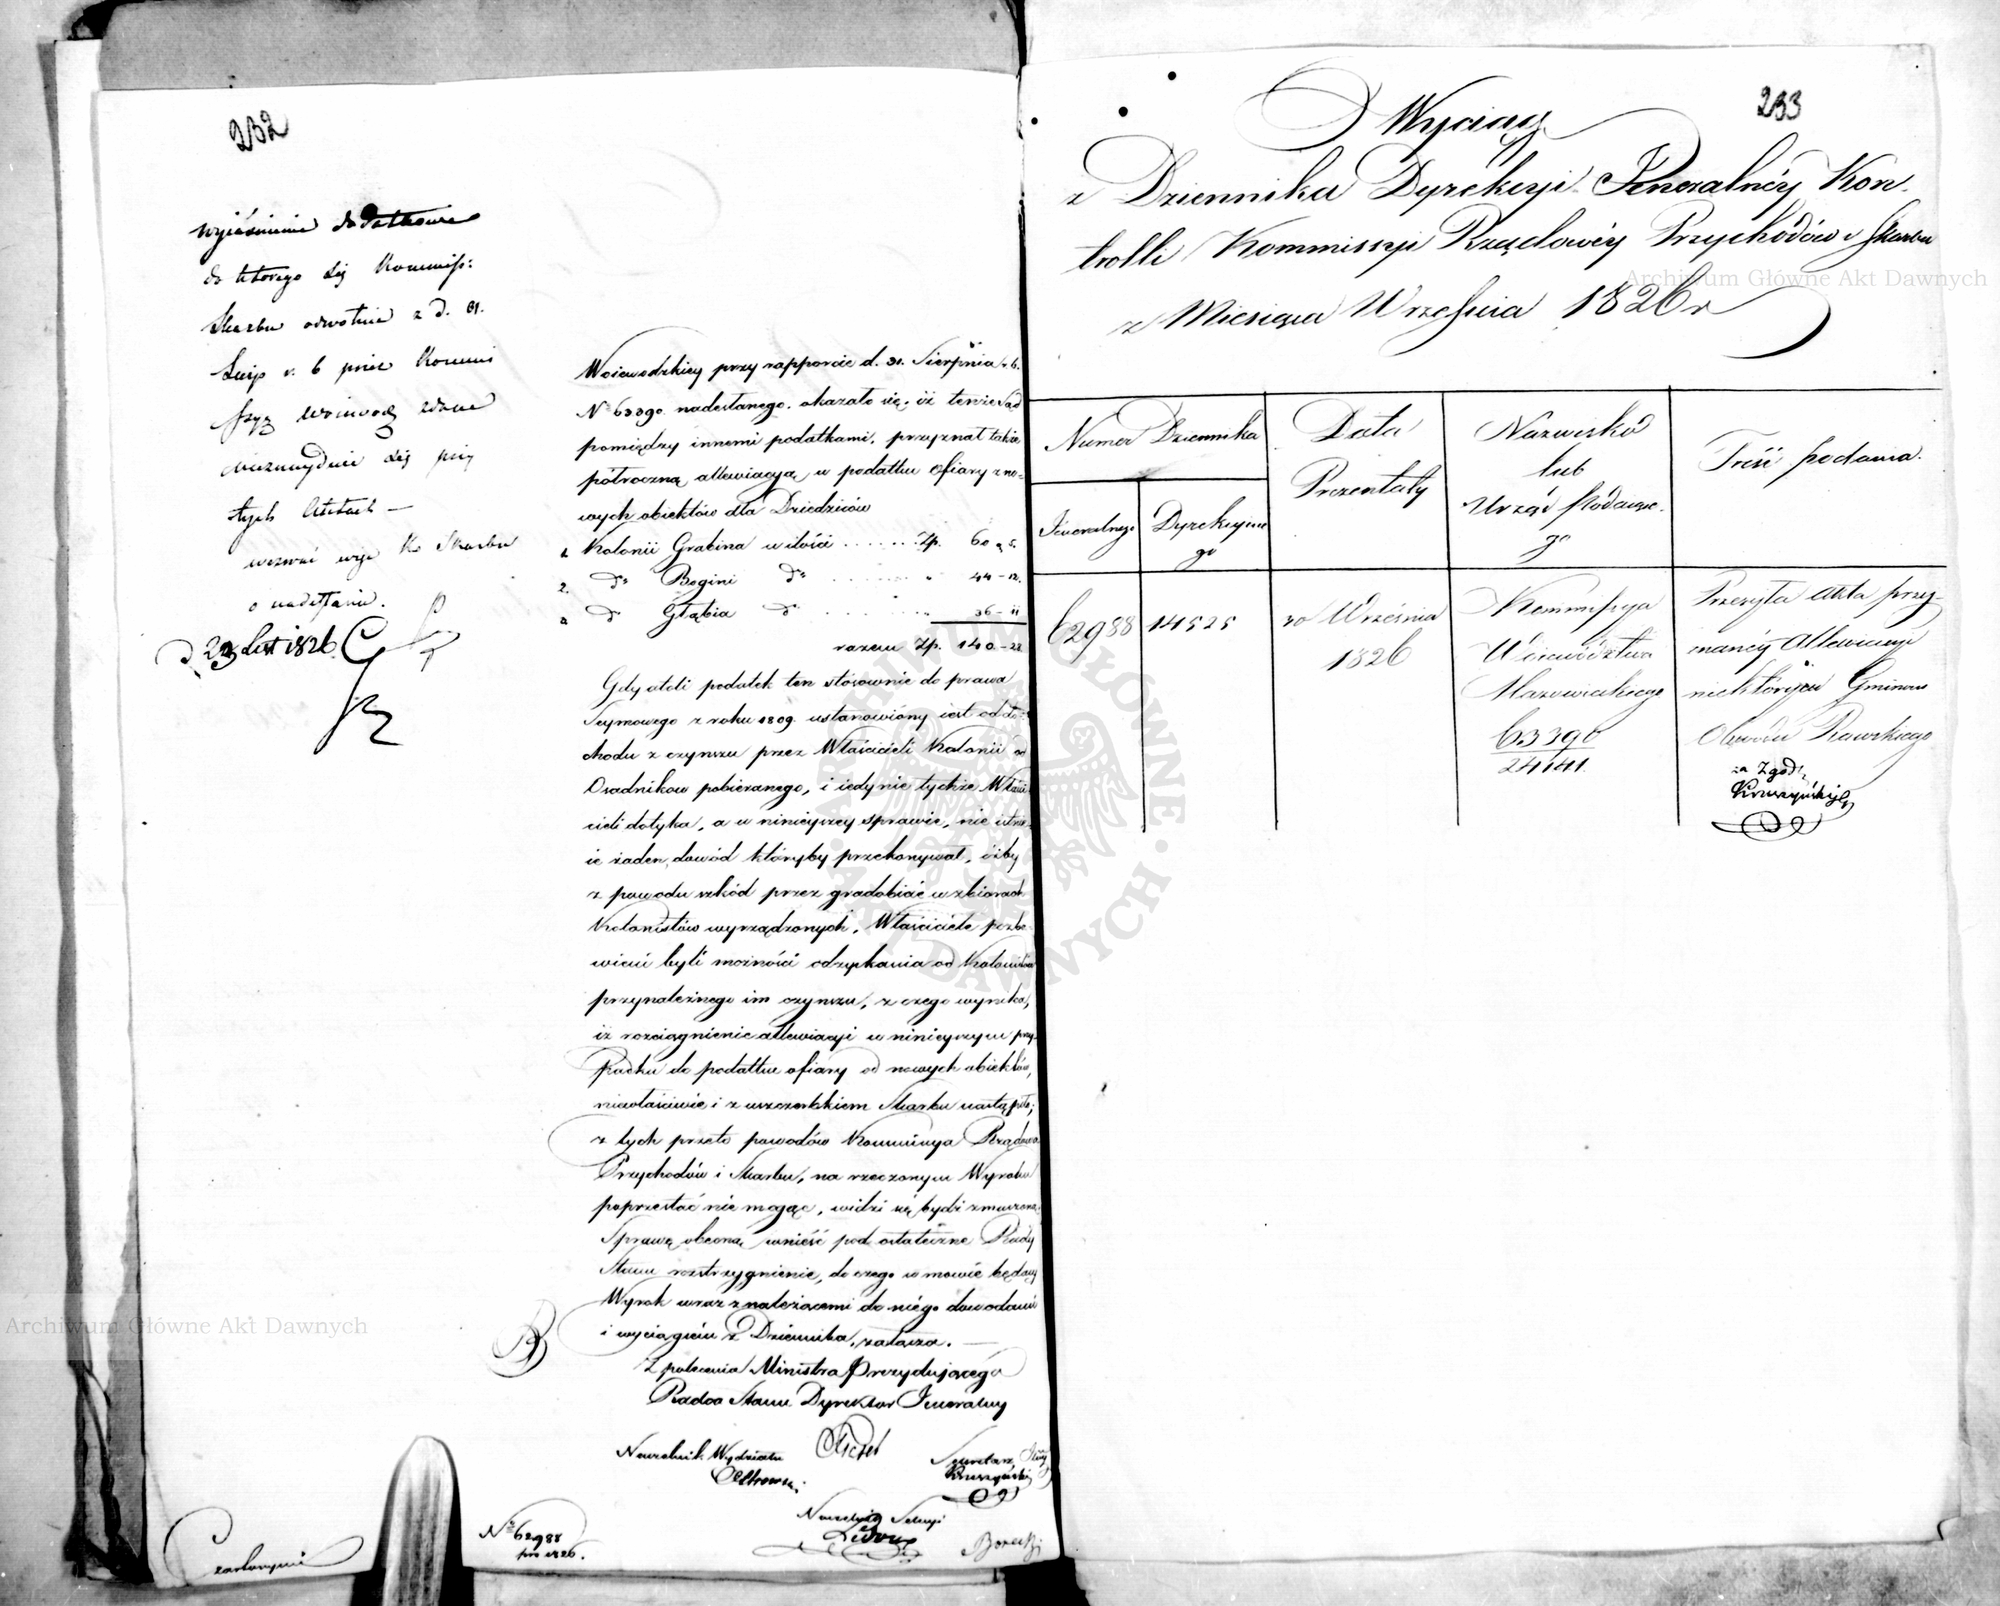 232
wyjaśnienie dodatkowe
do którego się Kommiss:
Skarbu odwołuie z d. 31.
Sierp r. b przez Kommis
syą Woiewodz
nieznayduie się przy
tych Aktach —
wezwać wge Ko Skarbu
o nadesłanie.
d. 23 List 1826.
Woiewodzkiey przy rapporcie d. 31. Sierpnia r. b.
No 63390. nadesłanego. okazało się, iż tenże Sąd
pomiędzy innemi podatkami, przyznał także
półroczną allewiacyą w podatku Ofiary z no-
wych obiektów dla Dziedziców
1. Kolonii Grabina w ilości ....... Zp. 60 „ 5.
2. do Bogini do ....... „ 44 – 12.
3. do Głąbia do ....... „ 36 – 11
razem Zp. 140. – 28
Gdy atoli podatek ten stósownie do prawa
Seymowego z roku 1809. ustanowiony iest od do-
chodu z czynszu przez Właścicieli Kolonii od
Osadników pobieranego, i iedynie tychże Właści
cieli dotyka, a w ninieyszey sprawie, nie istnie-
ie żaden dowód któryby przekonywał, iżby
z powodu szkód przez gradobicie w zbiorach
Kolonistów wyrządzonych, Właściciele pozba-
wieni byli możności odzyskania od Kolonistów
przynależnego im czynszu, z czego wynika,
iż rozciągnienie allewiacyi w ninieyszym przy-
padku do podatku ofiary od nowych obiektów,
niewłaściwie i z uszczerbkiem Skarbu nastąpiło;
z tych przeto powodów Kommissya Rządowa
Przychodów i Skarbu, na rzeczonym Wyroku
poprzestać nie mogąc, widzi się bydź zmuszoną
Sprawę obecną wnieść pod ostateczne Rady
Stanu rozstrzygnienie, do czego w mowie będący
Wyrok wraz z należącemi do niego dowodami
i wyciągiem z Dziennika, załącza. —
Z polecenia Ministra Prezydującego
Radca Stanu Dyrektor Jeneralny
Naczelnik Wydziału
Sekretarz Jlny
Kruszyński
Naczelnik Sekcyi
No 62988
pro 1826.
233
Wyciąg
z Dziennika Dyrekcyi Jeneralnéy Kon-
trolli Kommissyi Rządowéy Przychodów i Skarbu
z Miesiąca Września 1826 r
Numer Dziennika
Jeneralnego
Dyrekcyine
go
Data
Prezentaty
Nazwisko
lub
Urząd Podaiące-
go
Treść podania.
62988
14525
20 Września
1826
Kommissya
Województwa
Mazowieckiego
63390
24141.
Przesyła akta przy-
znanéy Allewiacyi
niektórym Gminom
Obwodu Rawskiego
za Zgodt,
Kruszyński
Archiwum Główne Akt Dawnych
Archiwum Główne Akt Dawnych
ARCHIWUM GŁÓWNE AKT DAWNYCH